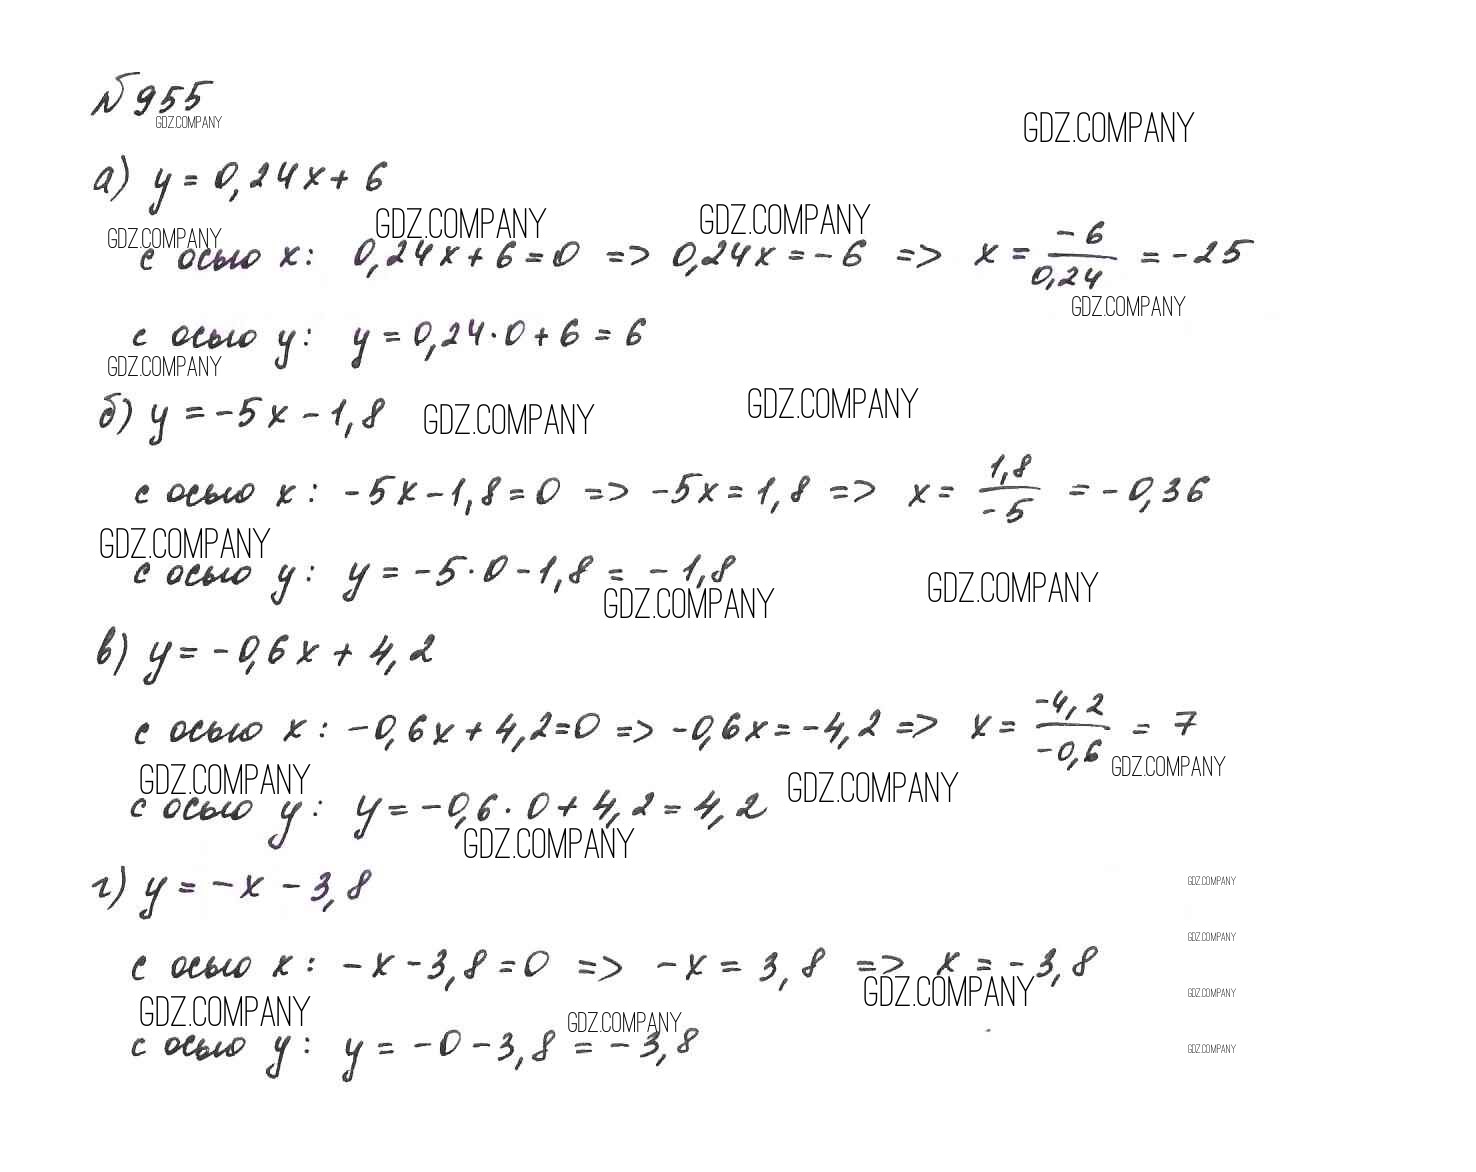 №955
GDZ.COMPANY
GDZ.COMPANY
а) y = 0,24x + 6
GDZ.COMPANY GDZ.COMPANY GDZ.COMPANY
с осью x: 0,24x + 6 = 0 => 0,24x = -6 => x = -6/0,24 = -25
GDZ.COMPANY
с осью y: y = 0,24·0 + 6 = 6
GDZ.COMPANY
б) y = -5x - 1,8 GDZ.COMPANY GDZ.COMPANY
с осью x: -5x - 1,8 = 0 => -5x = 1,8 => x = 1,8/-5 = -0,36
GDZ.COMPANY
с осью y: y = -5·0 - 1,8 = -1,8
GDZ.COMPANY GDZ.COMPANY
в) y = -0,6x + 4,2
с осью x: -0,6x + 4,2 = 0 => -0,6x = -4,2 => x = -4,2/-0,6 = 7
GDZ.COMPANY GDZ.COMPANY GDZ.COMPANY
с осью y: y = -0,6·0 + 4,2 = 4,2
GDZ.COMPANY
г) y = -x - 3,8
GDZ.COMPANY
GDZ.COMPANY
с осью x: -x - 3,8 = 0 => -x = 3,8 => x = -3,8
GDZ.COMPANY GDZ.COMPANY GDZ.COMPANY
GDZ.COMPANY
с осью y: y = -0 - 3,8 = -3,8
GDZ.COMPANY